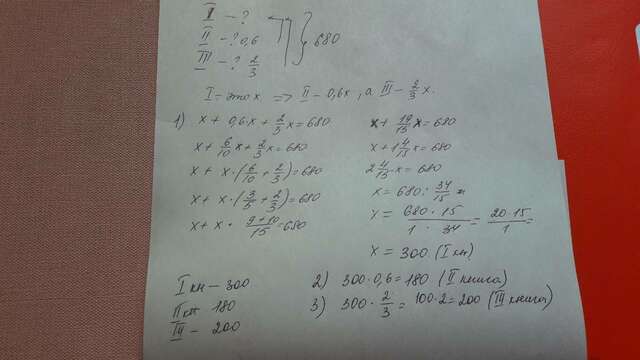 I – ?
II – ? 0,6
III – ? 2/3
} 680
I – это x => II – 0,6x, а III – 2/3 x.
1) x + 0,6x + 2/3 x = 680
x + 6/10 x + 2/3 x = 680
x + x · (6/10 + 2/3) = 680
x + x · (3/5 + 2/3) = 680
x + x · (9+10)/15 = 680
x + 19/15 x = 680
x + 1 4/15 x = 680
2 4/15 x = 680
x = 680 : 34/15
x = (680 · 15)/(1 · 34) = (20 · 15)/1 =
x = 300 (I кн)
2) 300 · 0,6 = 180 (II книга)
3) 300 · 2/3 = 100 · 2 = 200 (III книга)
I кн – 300
II кн 180
III – 200